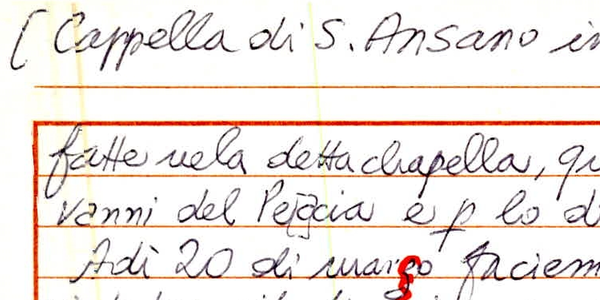 [ Cappella di S. Ansano in
fatte nela detta chapella, qu
vanni del Peccia e p lo d
Adì 20 di março faciem